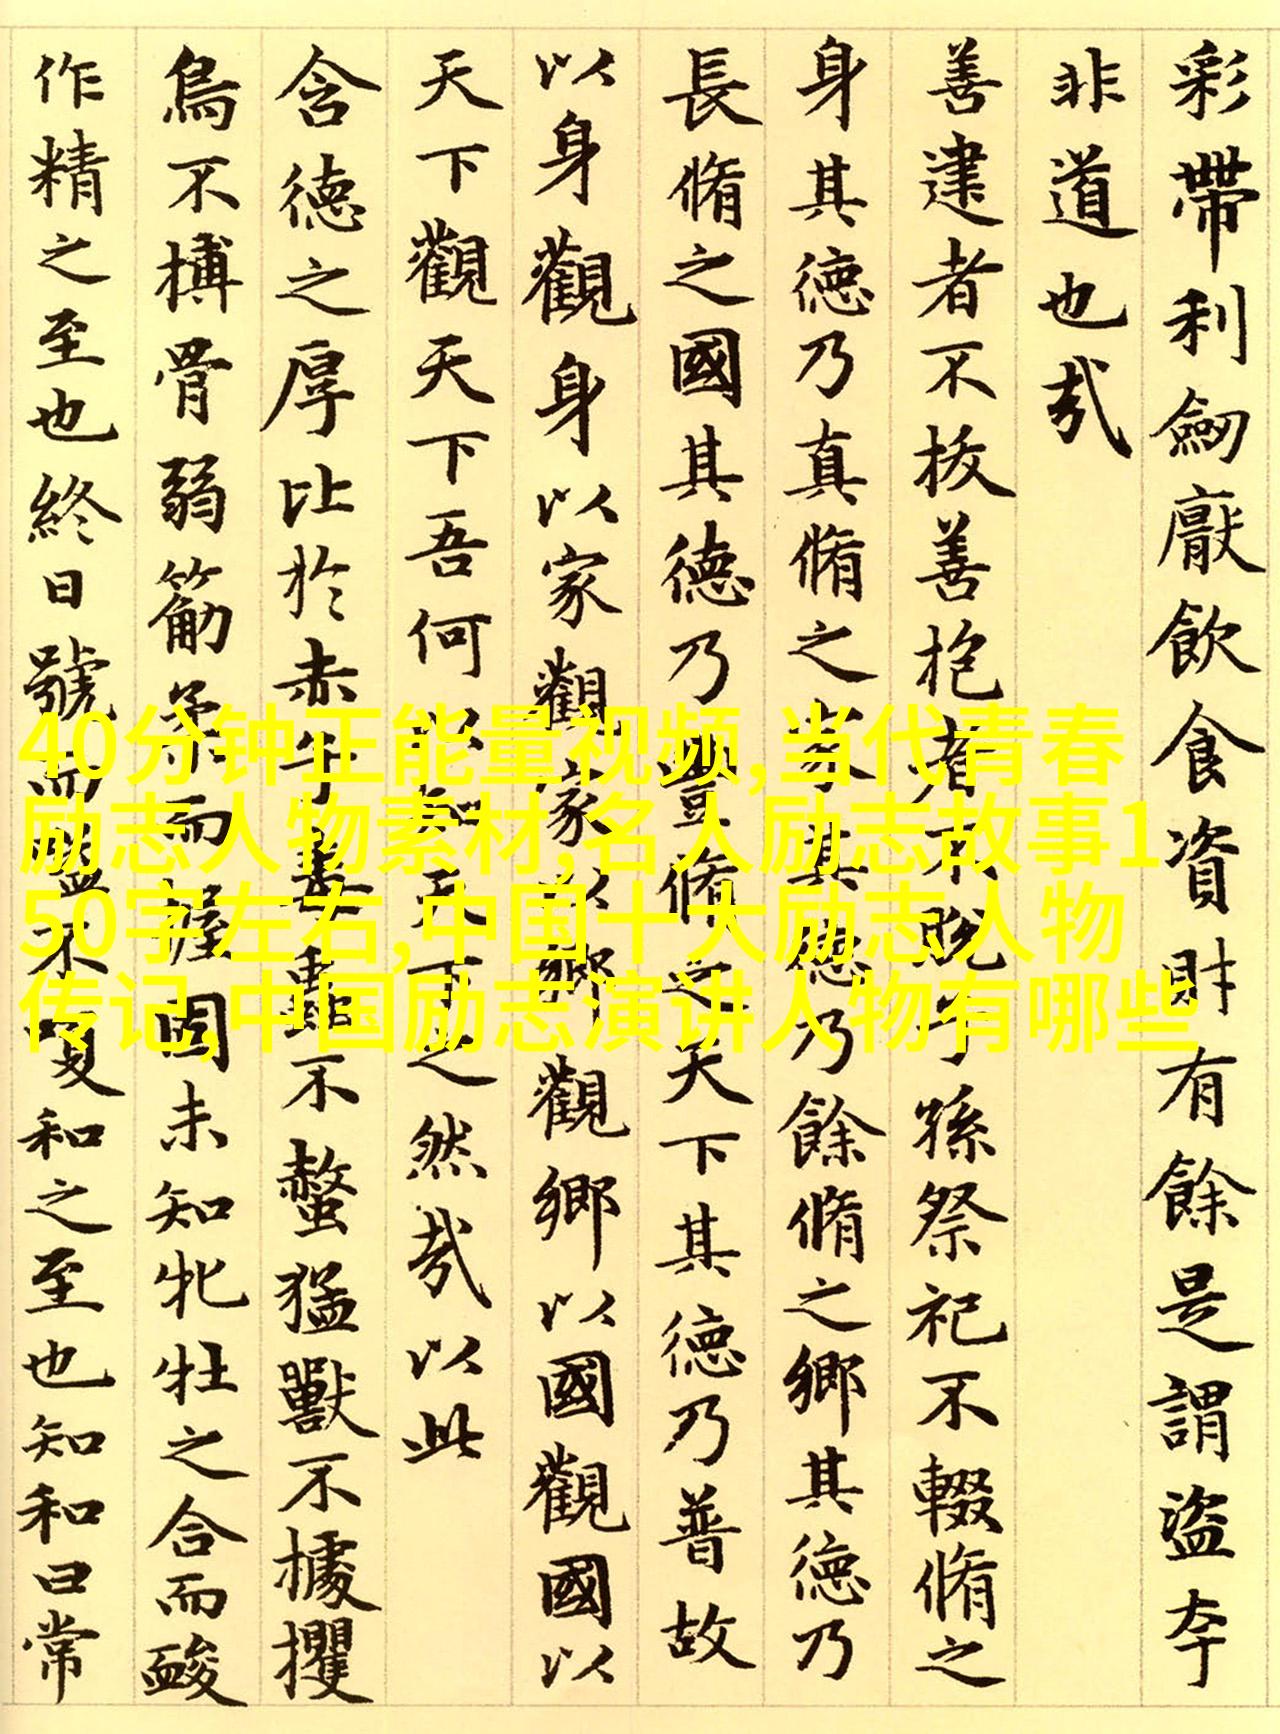 彩帶利劒厭飲食資財有餘是謂盜夸
非道也哉
善建者不拔善抱者不脫子孫祭祀不輟脩之
身其德乃真脩之家其德乃餘脩之鄉其德乃
長脩之國其德乃豐脩之天下其德乃普故
以身觀身以家觀家以鄉觀鄉以國觀國以
天下觀天下吾何以知天下之然哉以此
含德之厚比於赤子毒蟲不螫猛獸不據攫
鳥不搏骨弱筋柔而握固未知牝牡之合而
作精之至也終日號而嗌不嗄和之至也知和曰常
40分钟正能量视频,当代青春
励志人物素材,名人励志故事1
50字左右,中国十大励志人物
传记,中国励志演讲人物有哪些